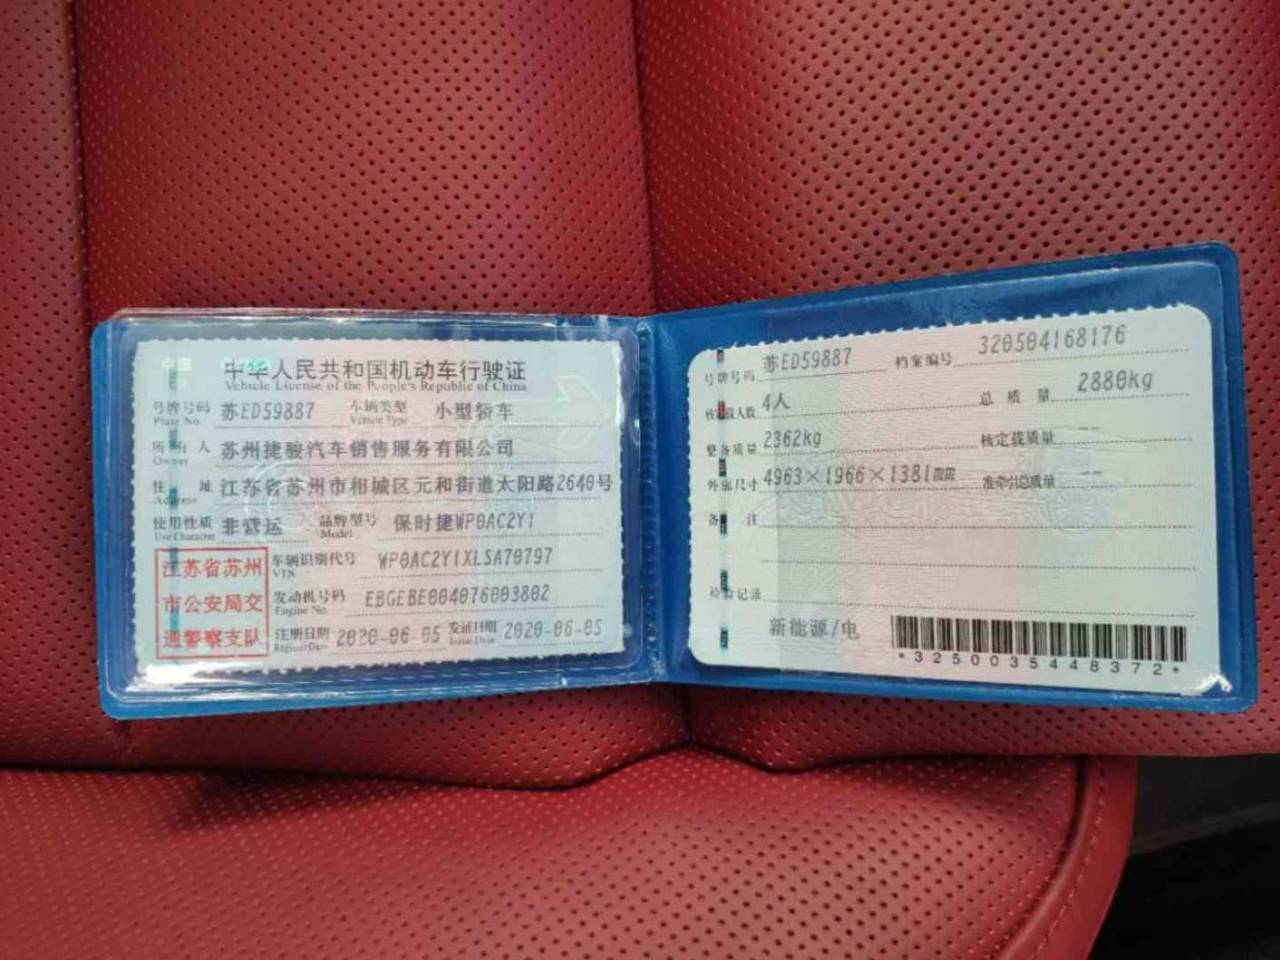 中华人民共和国机动车行驶证
Vehicle License of the People's Republic of China
号牌号码 苏ED59887 车辆类型 小型轿车
Plate No. Vehicle Type
所有人 苏州捷骏汽车销售服务有限公司
Owner
住址 江苏省苏州市相城区元和街道太阳路2640号
Address
使用性质 非营运 品牌型号 保时捷WP0AC2Y1
Use Character Model
江苏省苏州
市公安局交
通警察支队
车辆识别代号 WP0AC2Y1XLSA70797
VIN
发动机号码 EBGEBE004076003802
Engine No.
注册日期 2020-06-05 发证日期 2020-06-05
Register Date Issue Date
号牌号码 苏ED59887 档案编号 320504168176
核定载人数 4人 总质量 2880kg
整备质量 2362kg 核定载质量 --
外廓尺寸 4963×1966×1381mm 准牵引总质量 --
备注
检验记录
新能源/电
*3250035448372*